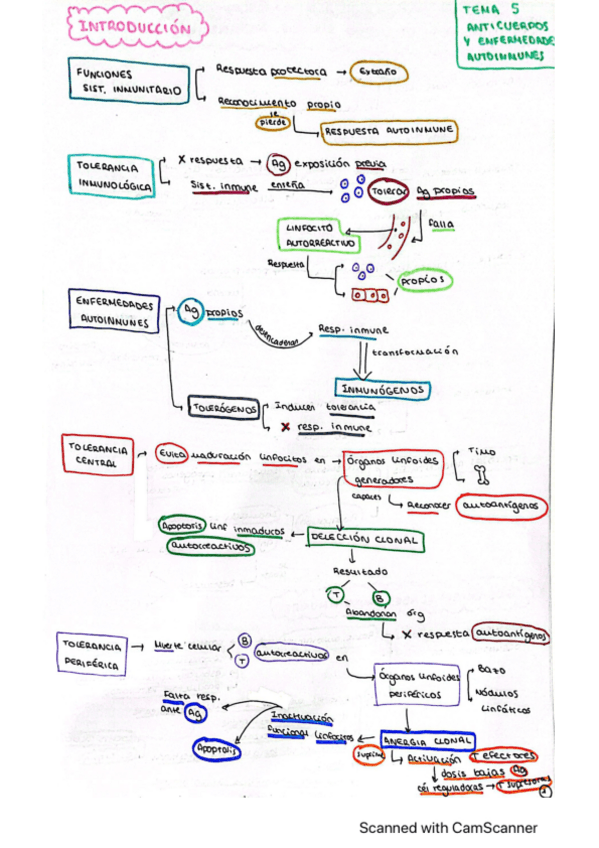 INTRODUCCIÓN
TEMA 5
ANTICUERPOS
Y ENFERMEDADE
AUTOINMUNES
FUNCIONES
SIST. INMUNITARIO
Respuesta protectora → Extraño
Reconocimiento propio
se
pierde
RESPUESTA AUTOINMUNE
TOLERANCIA
INMUNOLÓGICA
X respuesta → Ag exposición previa
Sist. inmune enseña → Tolerar Ag propios
falla
LINFOCITO
AUTORREACTIVO
Respuesta
PROPIOS
ENFERMEDADES
AUTOINMUNES
Ag propios
desencadenan
Resp. inmune
transformación
INMUNÓGENOS
TOLERÓGENOS
Inducen tolerancia
X resp. inmune
TOLERANCIA
CENTRAL
Evita maduración linfocitos en → Órganos linfoides
generadores
Timo
capaces
Reconocer autoantígenos
Apoptosis linf inmaduros
autorreactivos
DELECCIÓN CLONAL
Resultado
T B
Abandonan órg
X respuesta autoantígenos
TOLERANCIA
PERIFÉRICA
→ Muerte celular
B
T
autoreactivos en
Órganos linfoides
periféricos
Bazo
Nódulos
linfáticos
Falta resp.
ante Ag
Inactivación
funcional linfocitos
Apoptosis
ANERGIA CLONAL
Activación T efectores
dosis bajas Ag
cél reguladoras → T supresoras
Scanned with CamScanner